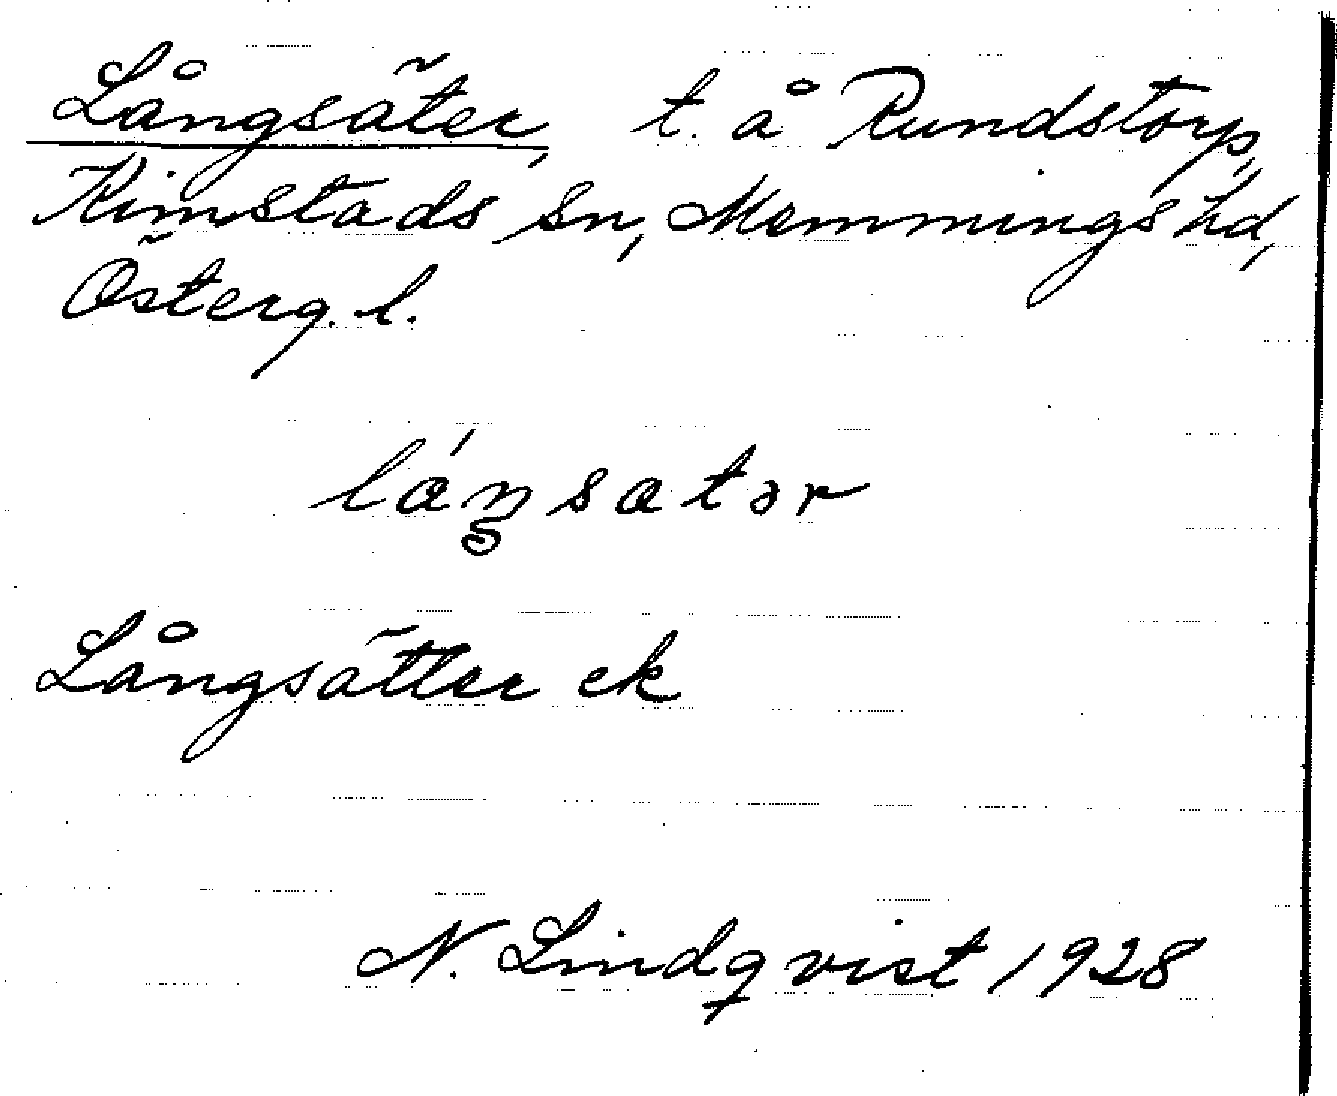 Långsäter, t. å Rundstorp,
Kimstads sn, Memmings hd,
Österg. l.
låŋsatər
Långsätter ek
N. Lindqvist 1928